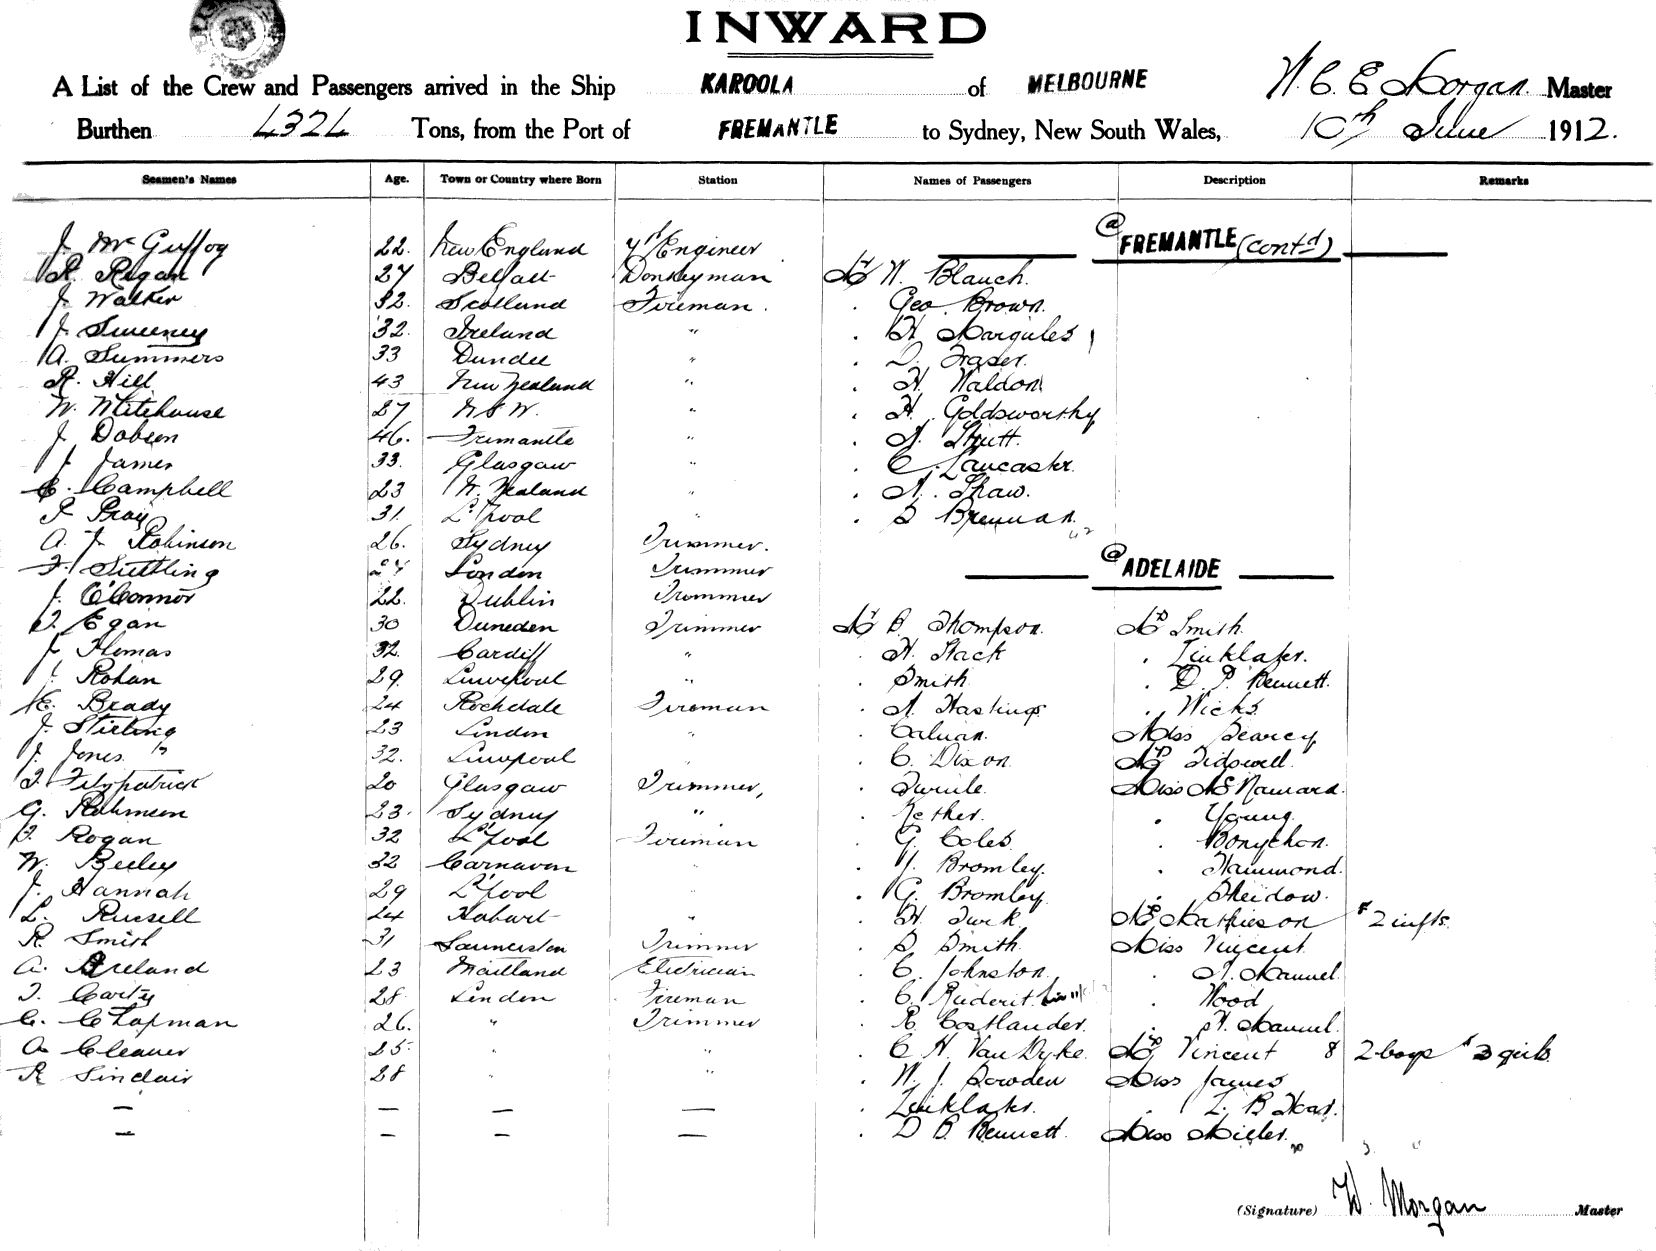 INWARD
A List of the Crew and Passengers arrived in the Ship KAROOLA of MELBOURNE W. C. E Morgan Master
Burthen 4324 Tons, from the Port of FREMANTLE to Sydney, New South Wales, 10th June 1912.
Seamen's Names Age. Town or Country where Born Station Names of Passengers Description Remarks
@ FREMANTLE (contd)
J. Mc Guffog 22. New England Engineer
R. Regan 27 Belfast Donkeyman Mr W. Blauch.
J. Walker 32. Scotland Fireman. . Geo. Brown.
J. Sweeney 32. Ireland " . H. Margules
A. Summers 33 Dundee " . D. Fraser.
R. Hill 43 New Zealand " . H. Waldon
W. Whitehouse 27 N S W. " . H. Goldsworthy
J. Dobson 46. Fremantle " . Strutt.
J. James 33. Glasgow " . C. Lancaster.
C. Campbell 23 N. Zealand " . A. Shaw.
31. L'pool " . Brennan.
A. J. Robinson 26. Sydney Trimmer.
@ ADELAIDE
F. London Trimmer
J. O'Connor 22. Dublin Trimmer
T. Egan 30 Duneden Trimmer Mr B. Thompson. Mrs Smith.
J. Thomas 32. Cardiff " . H. Stack . Linklater.
J. Rohan 29. Liverpool " . Smith . D. P. Bennett.
E. Brady 24 Rochdale Fireman . A. Hastings . Wicks.
J. Stirling 23 London " . Miss Pearcy
J. Jones. 32. Liverpool " . C. Dixon. Mrs Tidswell.
T. Fitzpatrick 20 Glasgow Trimmer, . Miss McNamara.
G. Robinson 23. Sydney " . Nether. . Young.
T. Rogan 32 L'pool Fireman . G. Coles. . Bonython.
W. Beeley 32 Carnavon " . J. Bromley. . Hammond.
J. Hannah 29 L'pool " . G. Bromley. . Sheidow.
L. Russell 24 Hobart " . H. Turk. Mrs Mathieson & 2 infts.
R. Smith 31 Launceston Trimmer . S. Smith. Miss Vincent.
A. Ireland 23 Maitland Electrician . C. Johnston. . A. Mannel.
T. Carty 28. London Fireman . C. Ruderit . Wood
C. Chapman 26. " Trimmer . R. Costlander. . H. Mannel.
A. Cleaver 25. " " . C. H. Van Dyke. Mrs Vincent & 2 boys & 3 girls.
R. Sinclair 28 " " . W. J. Bowden Miss James
— — — — . Linklater. . L. B
— — — — . D B. Bennett. Miss Miller.
(Signature) W. Morgan Master